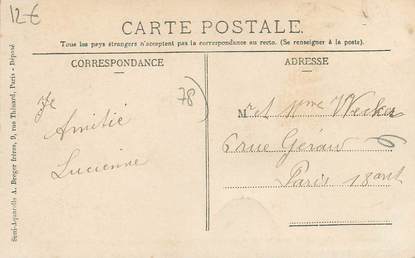 12€
CARTE POSTALE.
Tous les pays étrangers n'acceptent pas la correspondance au recto. (Se renseigner à la poste).
CORRESPONDANCE
ADRESSE
78)
Amitié
Lucienne
Mr et Mme Wecker
6 rue Géraw 6
Paris 18 arrt
Semi-Aquarelle A. Berger frères, 9, rue Thénard, Paris - Déposé